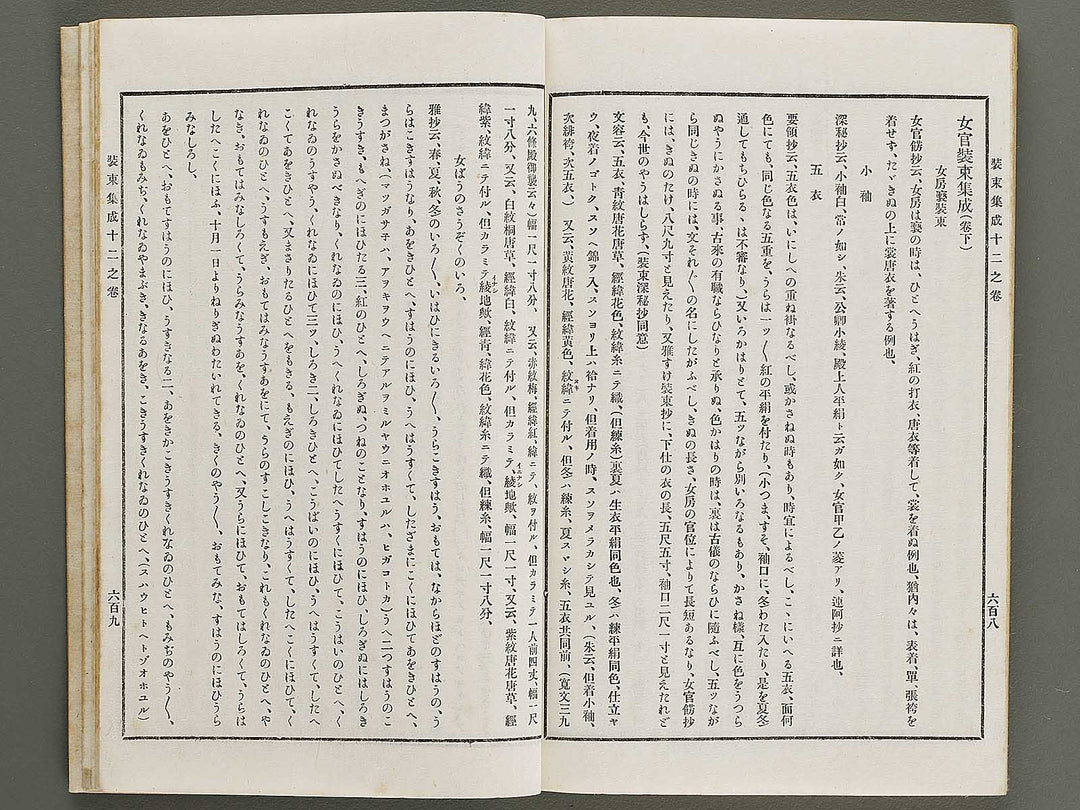 裝束集成十二之卷
六百八
女官裝束集成(卷下)
女房褻裝束
女官飾抄云、女房は褻の時は、ひとへうはぎ、紅の打衣、唐衣等着して、裳を着ぬ例也、猶內々は、表着、單、張袴を
着せず、たゞきぬの上に裳唐衣を著する例也、
小袖
深秘抄云、小袖白、常ノ如シ、朱云、公卿小綾、殿上人平絹ト云ガ如ク、女官甲乙ノ菱アリ、連阿抄ニ詳也、
五衣
要領抄云、五衣色は、いにしへの重ね褂なるべし、或かさねぬ時もあり、時宜によるべし、こゝにいへる五衣、面何
色にても、同じ色なる五重を、うらは一ツ〳〵紅の平絹を付たり、(小つま、すそ、袖口に、冬わた入たり、是を夏冬
通してもちひらるゝは不審なり、)又いろかはりとて、五ツながら別いろなるもあり、かさね樣、互に色をうつら
ぬやうにかさぬる事、古來の有職ならひなりと承りぬ、色かはりの時は、裏は古儀のならひに隨ふべし、五ツなが
ら同じきぬの時には、文それ〴〵の名にしたがふべし、きぬの長さ、女房の官位によりて長短あるなり、女官飾抄
には、きぬのたけ、八尺九寸と見えたり、又雅すけ裝束抄に、下仕の衣の長、五尺五寸、袖口二尺一寸と見えたれど
も、今世のやうはしらず、(裝束深秘抄同意)
文容云、五衣、靑紋唐花唐草、經緯花色、紋緯糸ニテ織、(但練糸)裏夏ハ生衣平絹同色也、冬ハ練平絹同色、仕立ヤ
ウ、夜着ノゴトク、スソヘ錦ヲ入、スソヨリ上ハ袷ナリ、但着用ノ時、スソヲメラカシテ見ユル、(朱云、但着小袖、
次緋袴、次五衣、) 又云、黃紋唐花、經緯黃色、紋緯ニテ付ル、但冬ハ練糸、夏スヾシ糸、五衣共同前、(寬文三九
九、六條殿御襲云々)幅一尺一寸八分、 又云、赤紋梅、經緯紅、緯ニテ、紋ヲ付ル、但カラミテ一人前四丈、幅一尺
一寸八分、又云、白紋桐唐草、經緯白、紋緯ニテ付ル、但カラミテ、綾地歟、幅一尺一寸又云、紫紋唐花唐草、經
緯紫、紋緯ニテ付ル、但カラミテ綾地歟、經靑、緯花色、紋緯糸ニテ織、但練糸、幅一尺一寸八分、
女ばうのさうぞくのいろ、
雅抄云、春、夏、秋、冬のいろ〳〵、いはひにきるいろ〳〵、うらこきすはう、おもては、なからほどのすはうの、う
らはこきすはうなり、あをきひとへ、すはうのにほひ、うへはうすくて、したざまにこくにほひてあをきひとへ、
まつがさね(マツガサ子ハ、アヲキヲウヘニテアルヲミルヤウニオホユルハ、ヒガコトカ)うへ二つすはうのこ
きうすき、もへぎのにほひたる三、紅のひとへ、しろぎぬ、つねのことなり、すはうのにほひ、しろぎぬにはしろき
うらをかさぬべきなり、くれなゐのにほひ、うへくれなゐにほひてしたへうすくにほひて、こうはいのひとへ、く
れなゐのうすやう、くれなゐにほひて三ツ、しろき二、しろきひとへ、こうばいのにほひ、うへはうすくて、したへ
こくてあをきひとへ、又まさりたるひとへをもきる、もえぎのにほひ、うへはうすくて、したへこくにほひて、く
れなゐのひとへ、うすもえぎ、おもてはみなうすあをにて、うらのすこしこきなり、これもくれなゐのひとへ、や
なき、おもてはみなしろくて、うらみなうすあを、くれなゐのひとへ、又うらにほひて、おもてはしろくて、うらは
したへこくにほふ、十月一日よりねりぎぬわたいれてきる、きくのやう〳〵、おもてみな、すはうのにほひうら
みなしろし、
あをひとへ、おもてすはうのにほひ、うすきなる二、あをきかこきうすきくれなゐのひとへ、もみぢのやう〳〵、
くれなゐもみぢ、くれなゐやまぶき、きなるあをき、こきうすきくれなゐのひとへ、(スハウヒトヘトゾオホユル)
裝束集成十二之卷
六百九